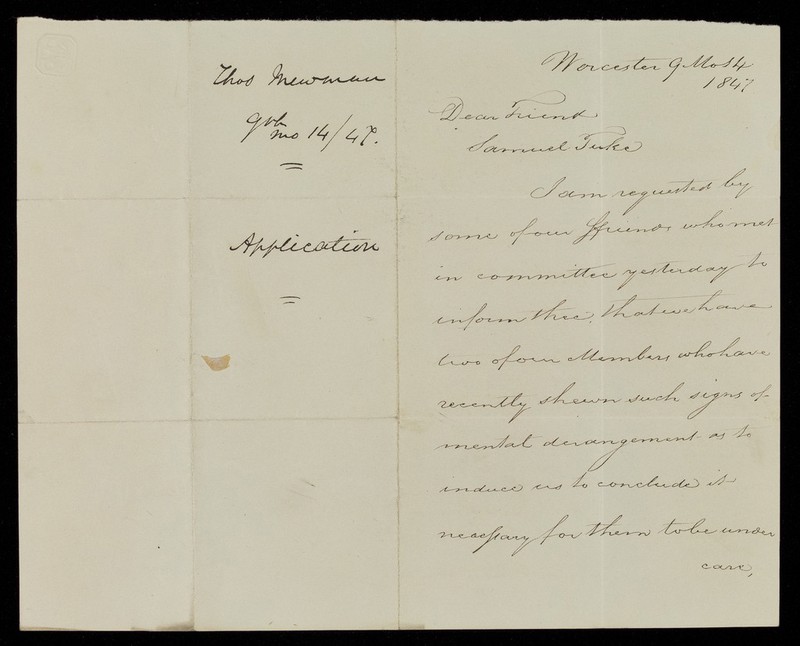 Thos Newman
9th mo 14/47.
Application
Worcester 9 Mo 14
1847
Dear Friend
Samuel Tuke
I am requested by
some of our ffriends who met
in committee yesterday to
inform thee, that we have
two of our Members who have
recently shewn such signs of
mental derangement as to
induce us to conclude it
necessary for them to be under
care,